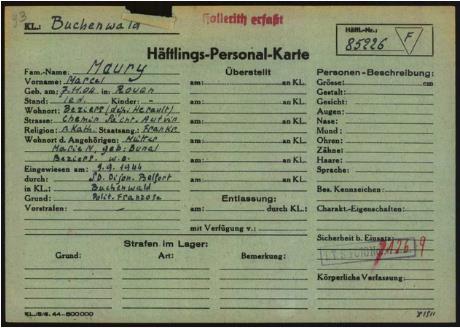 93
KL.: Buchenwald
Hollerith erfaßt
Häftl.-Nr.:
85226
F
Häftlings-Personal-Karte
Fam.-Name: Maury
Vorname: Marcel
Geb. am: 7.11.00 in: Rouen
Stand: led. Kinder: -
Wohnort: Beziers (dep. Herault)
Strasse: Chemin
Religion: r.Kath. Staatsang.: Frankr.
Wohnort d. Angehörigen: Mutter
Marie M. geb.
Beziers w.o.
Eingewiesen am: 9.9.1944
durch: SD. Dijon. Belfort
in KL.: Buchenwald
Grund: Polit. Franzose
Vorstrafen: -
Überstellt
am: an KL.
am: an KL.
am: an KL.
am: an KL.
am: an KL.
am: an KL.
Entlassung:
am: durch KL.:
mit Verfügung v.:
Personen-Beschreibung:
Grösse: cm
Gestalt:
Gesicht:
Augen:
Nase:
Mund:
Ohren:
Zähne:
Haare:
Sprache:
Bes. Kennzeichen:
Charakt.-Eigenschaften:
Sicherheit b. Einsatz:
Körperliche Verfassung:
Strafen im Lager:
Grund: Art: Bemerkung:
KL./5/6. 44-500000